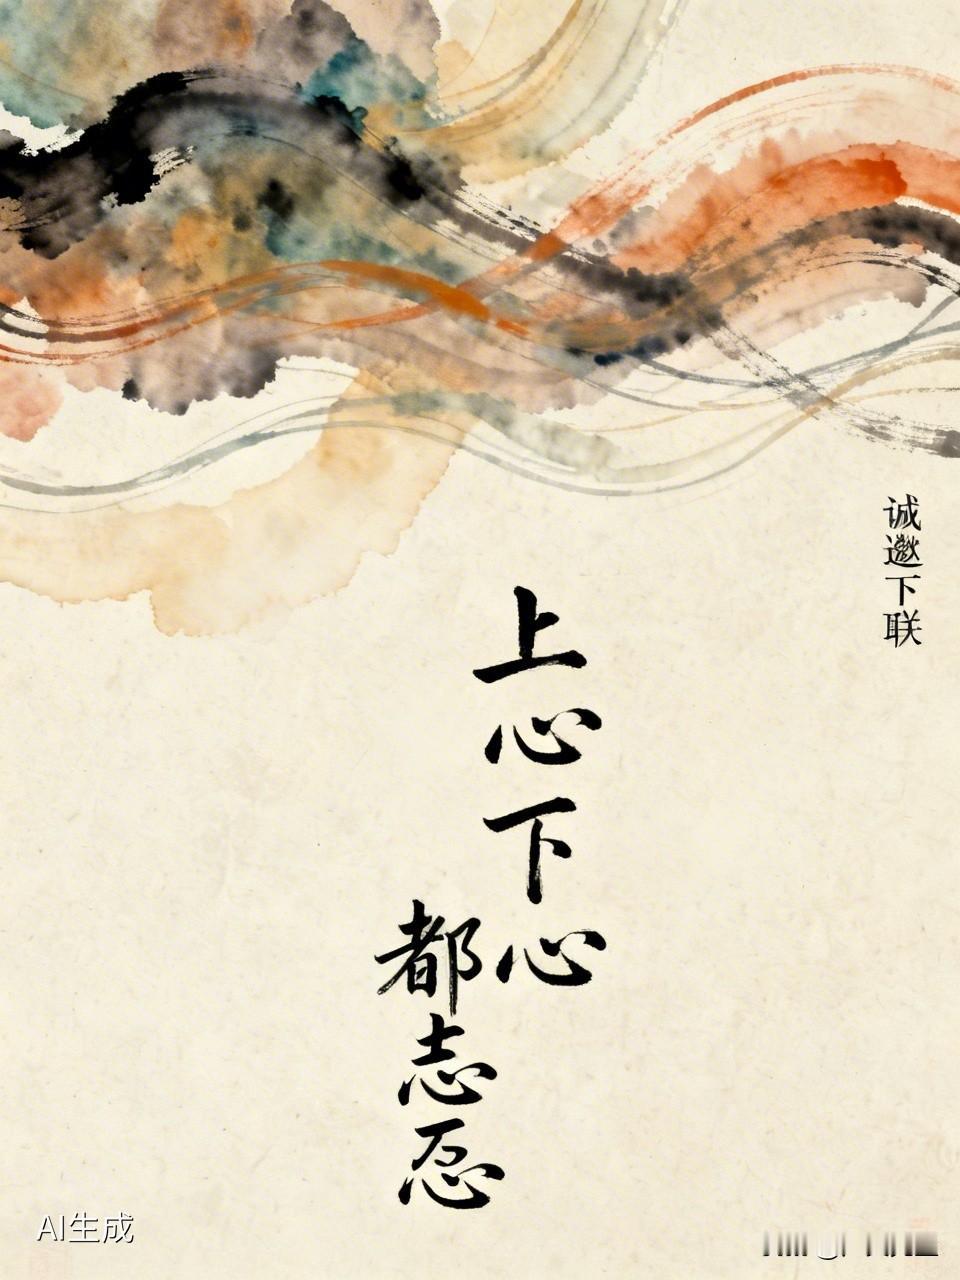 诚邀下联
上心下心
都志
AI生成